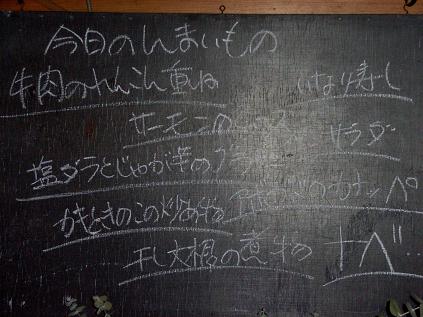 今日のんまいもの
牛肉のれんこん重ね いなり寿し
サーモンの サラダ
塩ダラとじゃが芋のブラ
カナッペ
かきときのこの炒め物
干し大根の煮物 ナベ…